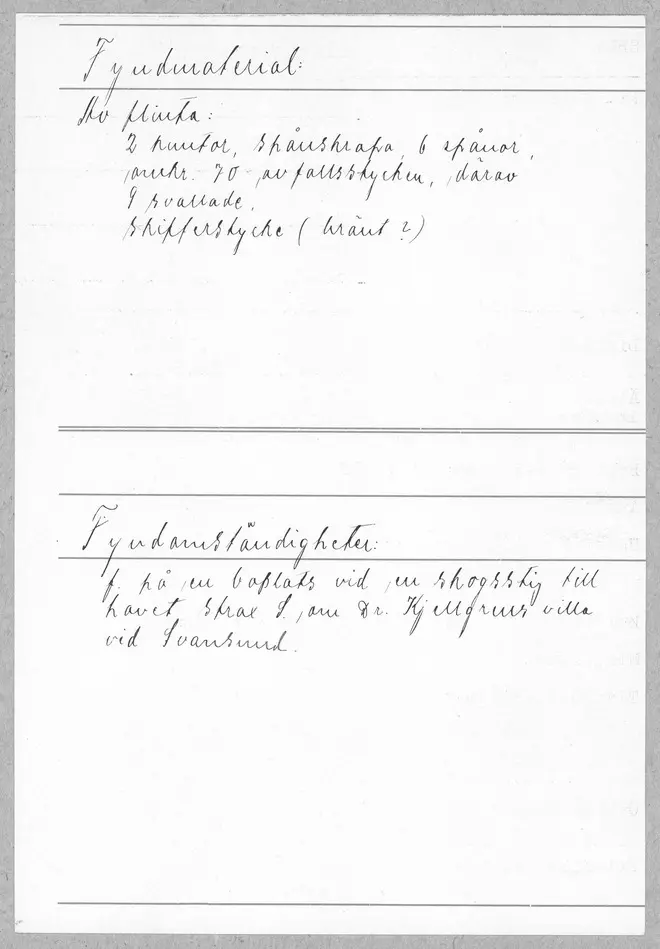 Fyndmaterial:
Av flinta:
2 kuutor, spånskrapa, 6 spånor,
omkr. 70 avfallsstycken, därav
9 svallade.
skifferstycke (bränt?)
Fyndomständigheter:
f. på en boplats vid en skogsstig till
havet strax S. om Dr. Kjellgrens villa
vid Svansund.